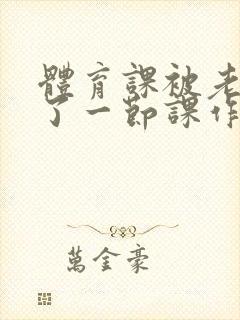 體育課被老
了一節課作
萬金豪